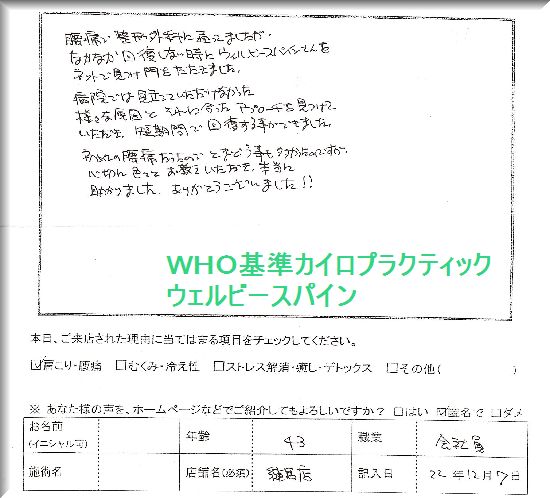 腰痛で整形外科に通ってましたが、
なかなか回復しない時にウィルビースパインさんを
ネットで見つけ門をたたきました。
病院では見立ていただけなかった
様々な原因とそれに合ったアプローチを見つけて
いただき、短期間で回復する事ができました。
初めての腰痛だったのでとまどう事も多かったのですが、
心切に色々とお教えいただき、本当に
助かりました。ありがとうございました!!
WHO基準カイロプラクティック
ウェルビースパイン
本日、ご来店された理由に当てはまる項目をチェックしてください。
☑肩こり・腰痛 □むくみ・冷え性 □ストレス解消・癒し・デトックス □その他( )
※ あなた様の声を、ホームページなどでご紹介してもよろしいですか？ □はい ☑匿名で □ダメ
お名前 (イニシャル可) 年齢 43 職業 会社員
施術名 店舗名(必須) 練馬店 記入日 22年12月7日